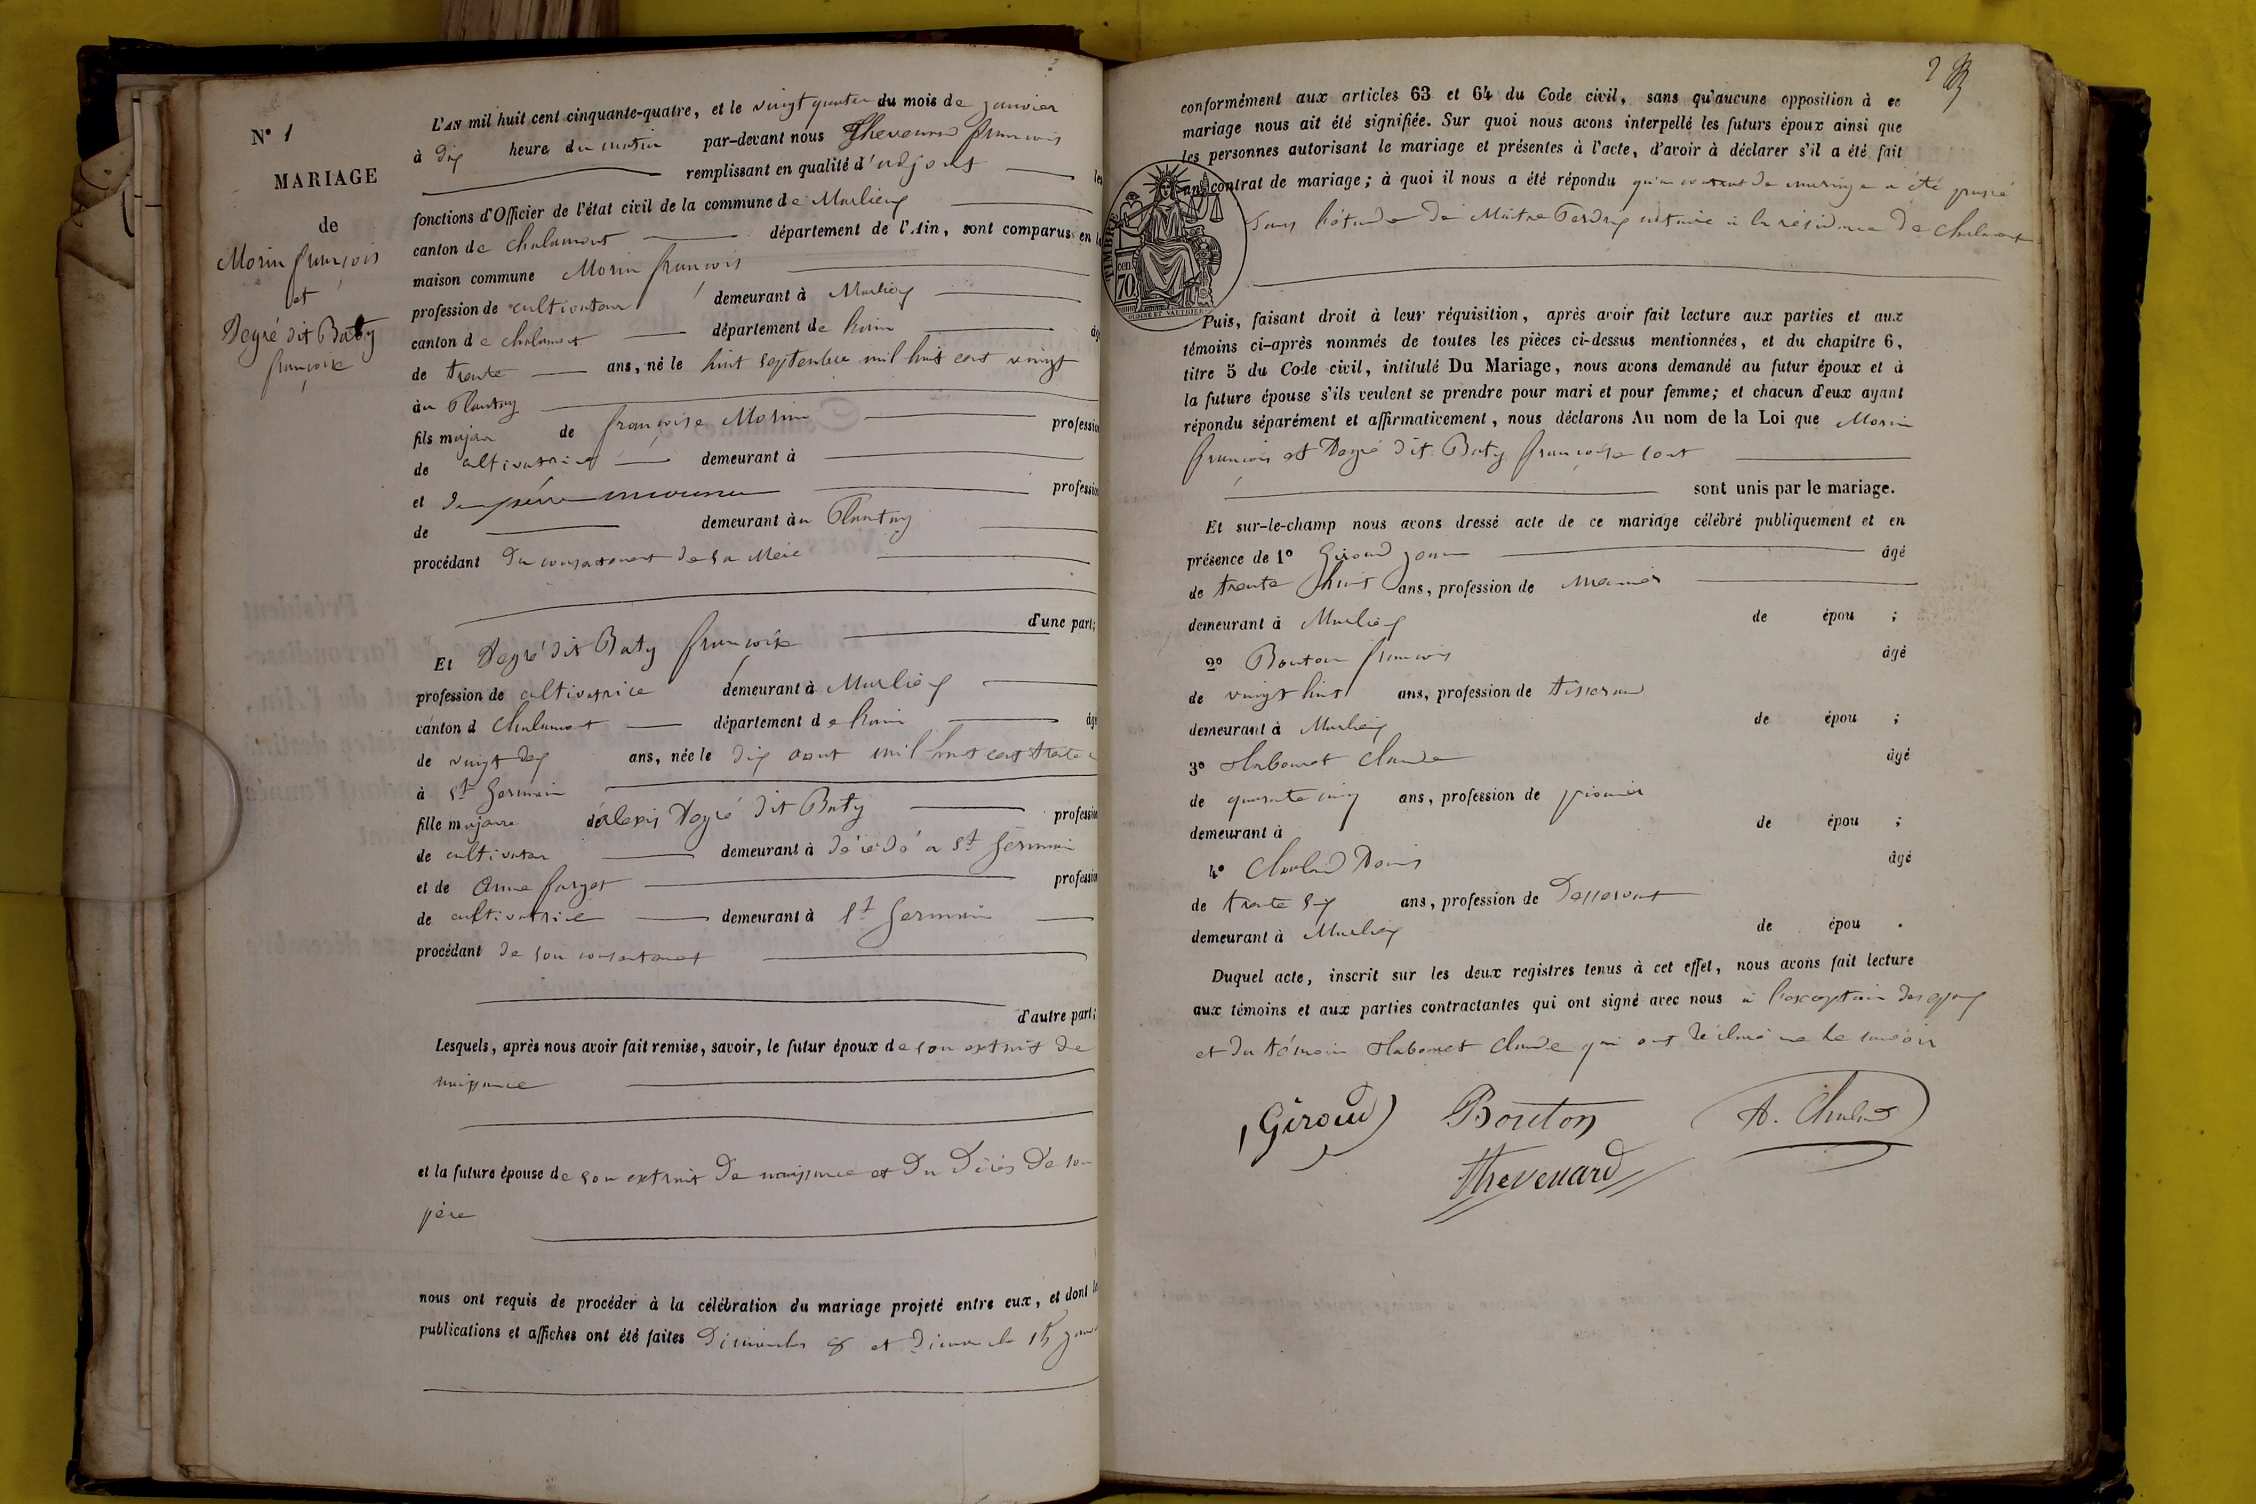 N° 1
MARIAGE
de
Morin françois
et
Degré dit Baty
françoise
L'AN mil huit cent cinquante-quatre, et le vingt quatre du mois de janvier
à dix heure du matin par-devant nous Thevenard françois
remplissant en qualité d'adjoint les
fonctions d'Officier de l'état civil de la commune de Marlieux
canton de chalamont département de l'Ain, sont comparus en la
maison commune Morin françois
profession de cultivateur demeurant à Marlieux
canton de chalamont département de l'ain âgé
de trente ans, né le huit septembre mil huit cent vingt
au Plantay
fils majeur de françoise Morin profession
de cultivatrice demeurant à
et de père inconnu profession
de demeurant au Plantay
procédant du consentement de sa Mère
d'une part;
Et Degré dit Baty françoise
profession de cultivatrice demeurant à Marlieux
canton d Chalamont département de l'ain âgé
de vingt ans, née le dix aout mil huit cent trente
à St Germain
fille majeure de alexis Degré dit Baty profession
de cultivateur demeurant à décédé a St Germain
et de Anne farget profession
de cultivatrice demeurant à St Germain
procédant de son consentement
d'autre part;
Lesquels, après nous avoir fait remise, savoir, le futur époux de son extrait de
naissance
et la future épouse de son extrait de naissance et du Décès de son
père
nous ont requis de procéder à la célébration du mariage projeté entre eux, et dont les
publications et affiches ont été faites Dimanche 8 et Dimanche 15
2
conformément aux articles 63 et 64 du Code civil, sans qu'aucune opposition à ce
mariage nous ait été signifiée. Sur quoi nous avons interpellé les futurs époux ainsi que
les personnes autorisant le mariage et présentes à l'acte, d'avoir à déclarer s'il a été fait
un contrat de mariage; à quoi il nous a été répondu qu'un contrat de mariage a été passé
dans l'étude de Maitre Perdrix notaire a la résidence de chalamont
TIMBRE
70
Puis, faisant droit à leur réquisition, après avoir fait lecture aux parties et aux
témoins ci-après nommés de toutes les pièces ci-dessus mentionnées, et du chapitre 6,
titre 5 du Code civil, intitulé Du Mariage, nous avons demandé au futur époux et à
la future épouse s'ils veulent se prendre pour mari et pour femme; et chacun d'eux ayant
répondu séparément et affirmativement, nous déclarons Au nom de la Loi que Morin
françois et Degré dit Baty françoise sont
sont unis par le mariage.
Et sur-le-champ nous avons dressé acte de ce mariage célébré publiquement et en
présence de 1° Giroud âgé
de trente huit ans, profession de
demeurant à Marlieux de épou ;
2° Bouton françois âgé
de vingt huit ans, profession de tisserand
demeurant à Marlieux de épou ;
3° Claude âgé
de quarante cinq ans, profession de
demeurant à de épou ;
4° Denis âgé
de trente six ans, profession de
demeurant à Marlieux de épou .
Duquel acte, inscrit sur les deux registres tenus à cet effet, nous avons fait lecture
aux témoins et aux parties contractantes qui ont signé avec nous a l'exception des époux
et du témoin Claude qui ont déclaré ne le savoir
Giroud Bouton
Thevenard